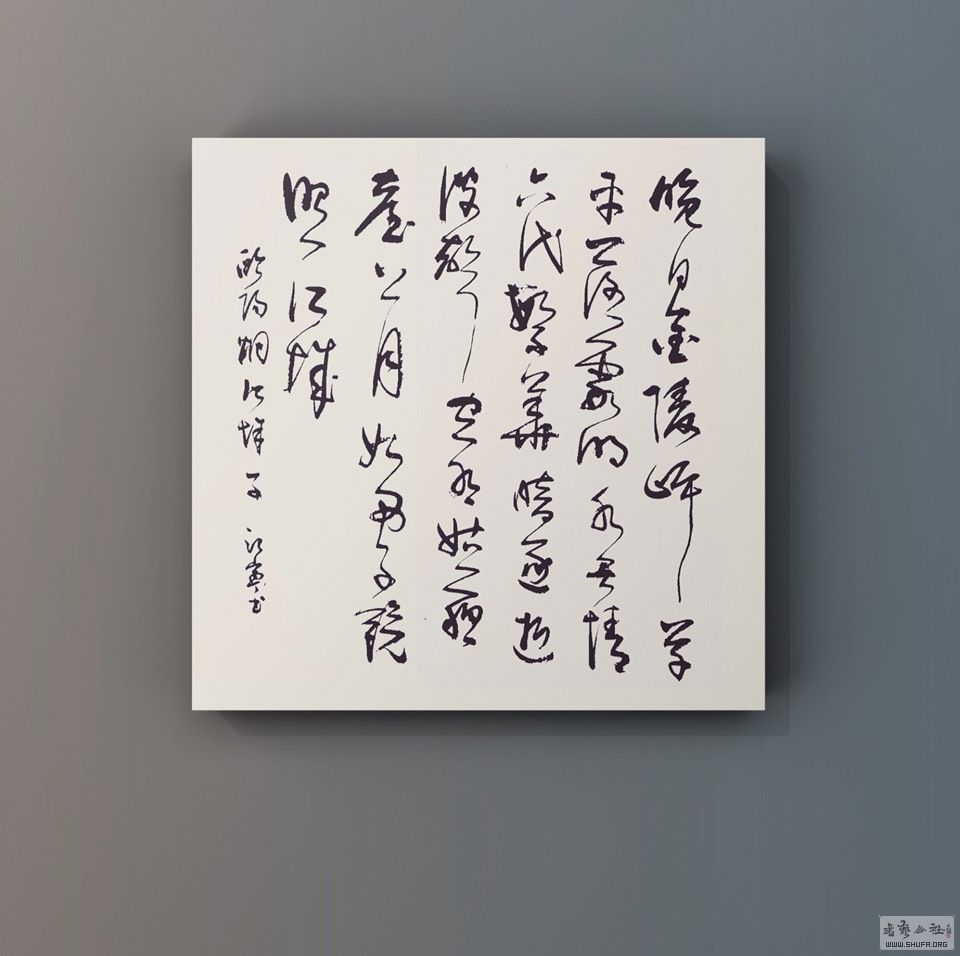 晚日金陵岸草
平落霞明水無情
六代繁華暗逐逝
波聲空有姑蘇
臺上月如西子鏡
照江城
歐陽炯江城子 書
書藝公社
WWW.SHUFA.ORG